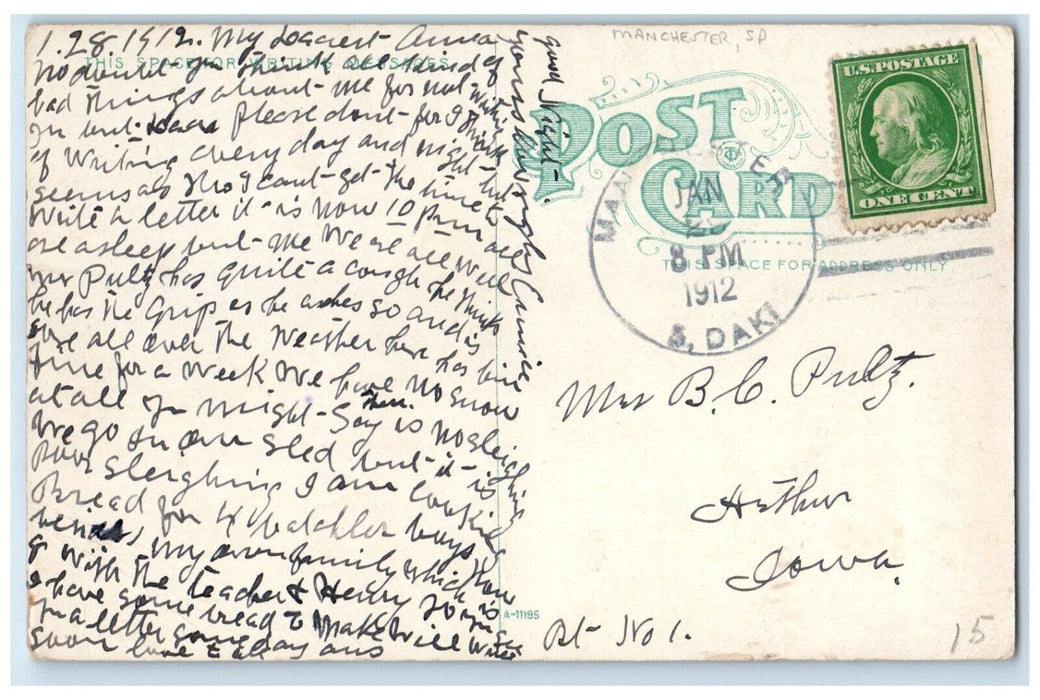 1.28.1912. My Dearest Anna
THIS SPACE FOR WRITING MESSAGES
No doubt you think all kind of
bad things about me for not writing
you but please dont for I think
of Writing every day and night but
seems as tho I cant get the time to
write a letter it is now 10 pm all
are asleep but me We are all well
Mr Pultz has quite a cough he thinks
he has the Grip as he aches so and is
sore all over The Weather here has bin
fine for a Week We have no snow
at all you might say
then is no sleighing
We go on our sled but it is
poor sleighing I am cooking
Bread for 4 batchlor boys
besides my own family which now
is with the teacher & Henry 7 so you see
I have some bread to Make Will write
you a letter some day
soon love to all
good Night
yours
MANCHESTER, SD
POST CARD
U.S. POSTAGE
ONE CENT
MANCHESTER
JAN
8 PM
1912
S. DAK
THIS SPACE FOR ADDRESS ONLY
Mrs B. C. Pultz.
Arthur
Iowa.
A-11185
Rt No 1.
15